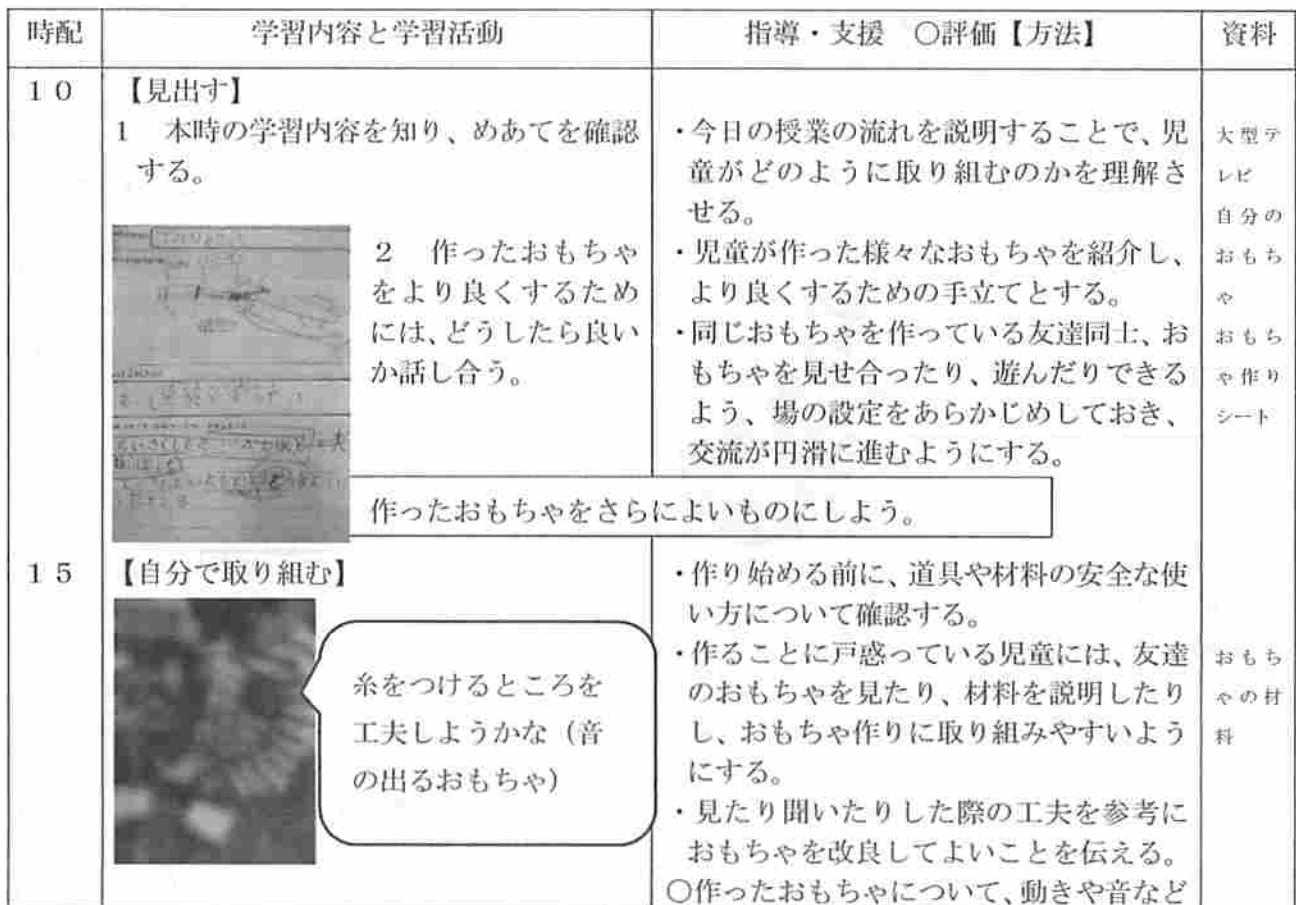 時配
学習内容と学習活動
指導・支援　○評価【方法】
資料
１０
【見出す】
１　本時の学習内容を知り、めあてを確認
する。
２　作ったおもちゃ
をより良くするため
には、どうしたら良い
か話し合う。
・今日の授業の流れを説明することで、児
童がどのように取り組むのかを理解さ
せる。
・児童が作った様々なおもちゃを紹介し、
より良くするための手立てとする。
・同じおもちゃを作っている友達同士、お
もちゃを見せ合ったり、遊んだりできる
よう、場の設定をあらかじめしておき、
交流が円滑に進むようにする。
大型テ
レビ
自分の
おもち
ゃ
おもち
ゃ作り
シート
作ったおもちゃをさらによいものにしよう。
１５
【自分で取り組む】
糸をつけるところを
工夫しようかな（音
の出るおもちゃ）
・作り始める前に、道具や材料の安全な使
い方について確認する。
・作ることに戸惑っている児童には、友達
のおもちゃを見たり、材料を説明したり
し、おもちゃ作りに取り組みやすいよう
にする。
・見たり聞いたりした際の工夫を参考に
おもちゃを改良してよいことを伝える。
○作ったおもちゃについて、動きや音など
おもち
ゃの材
料